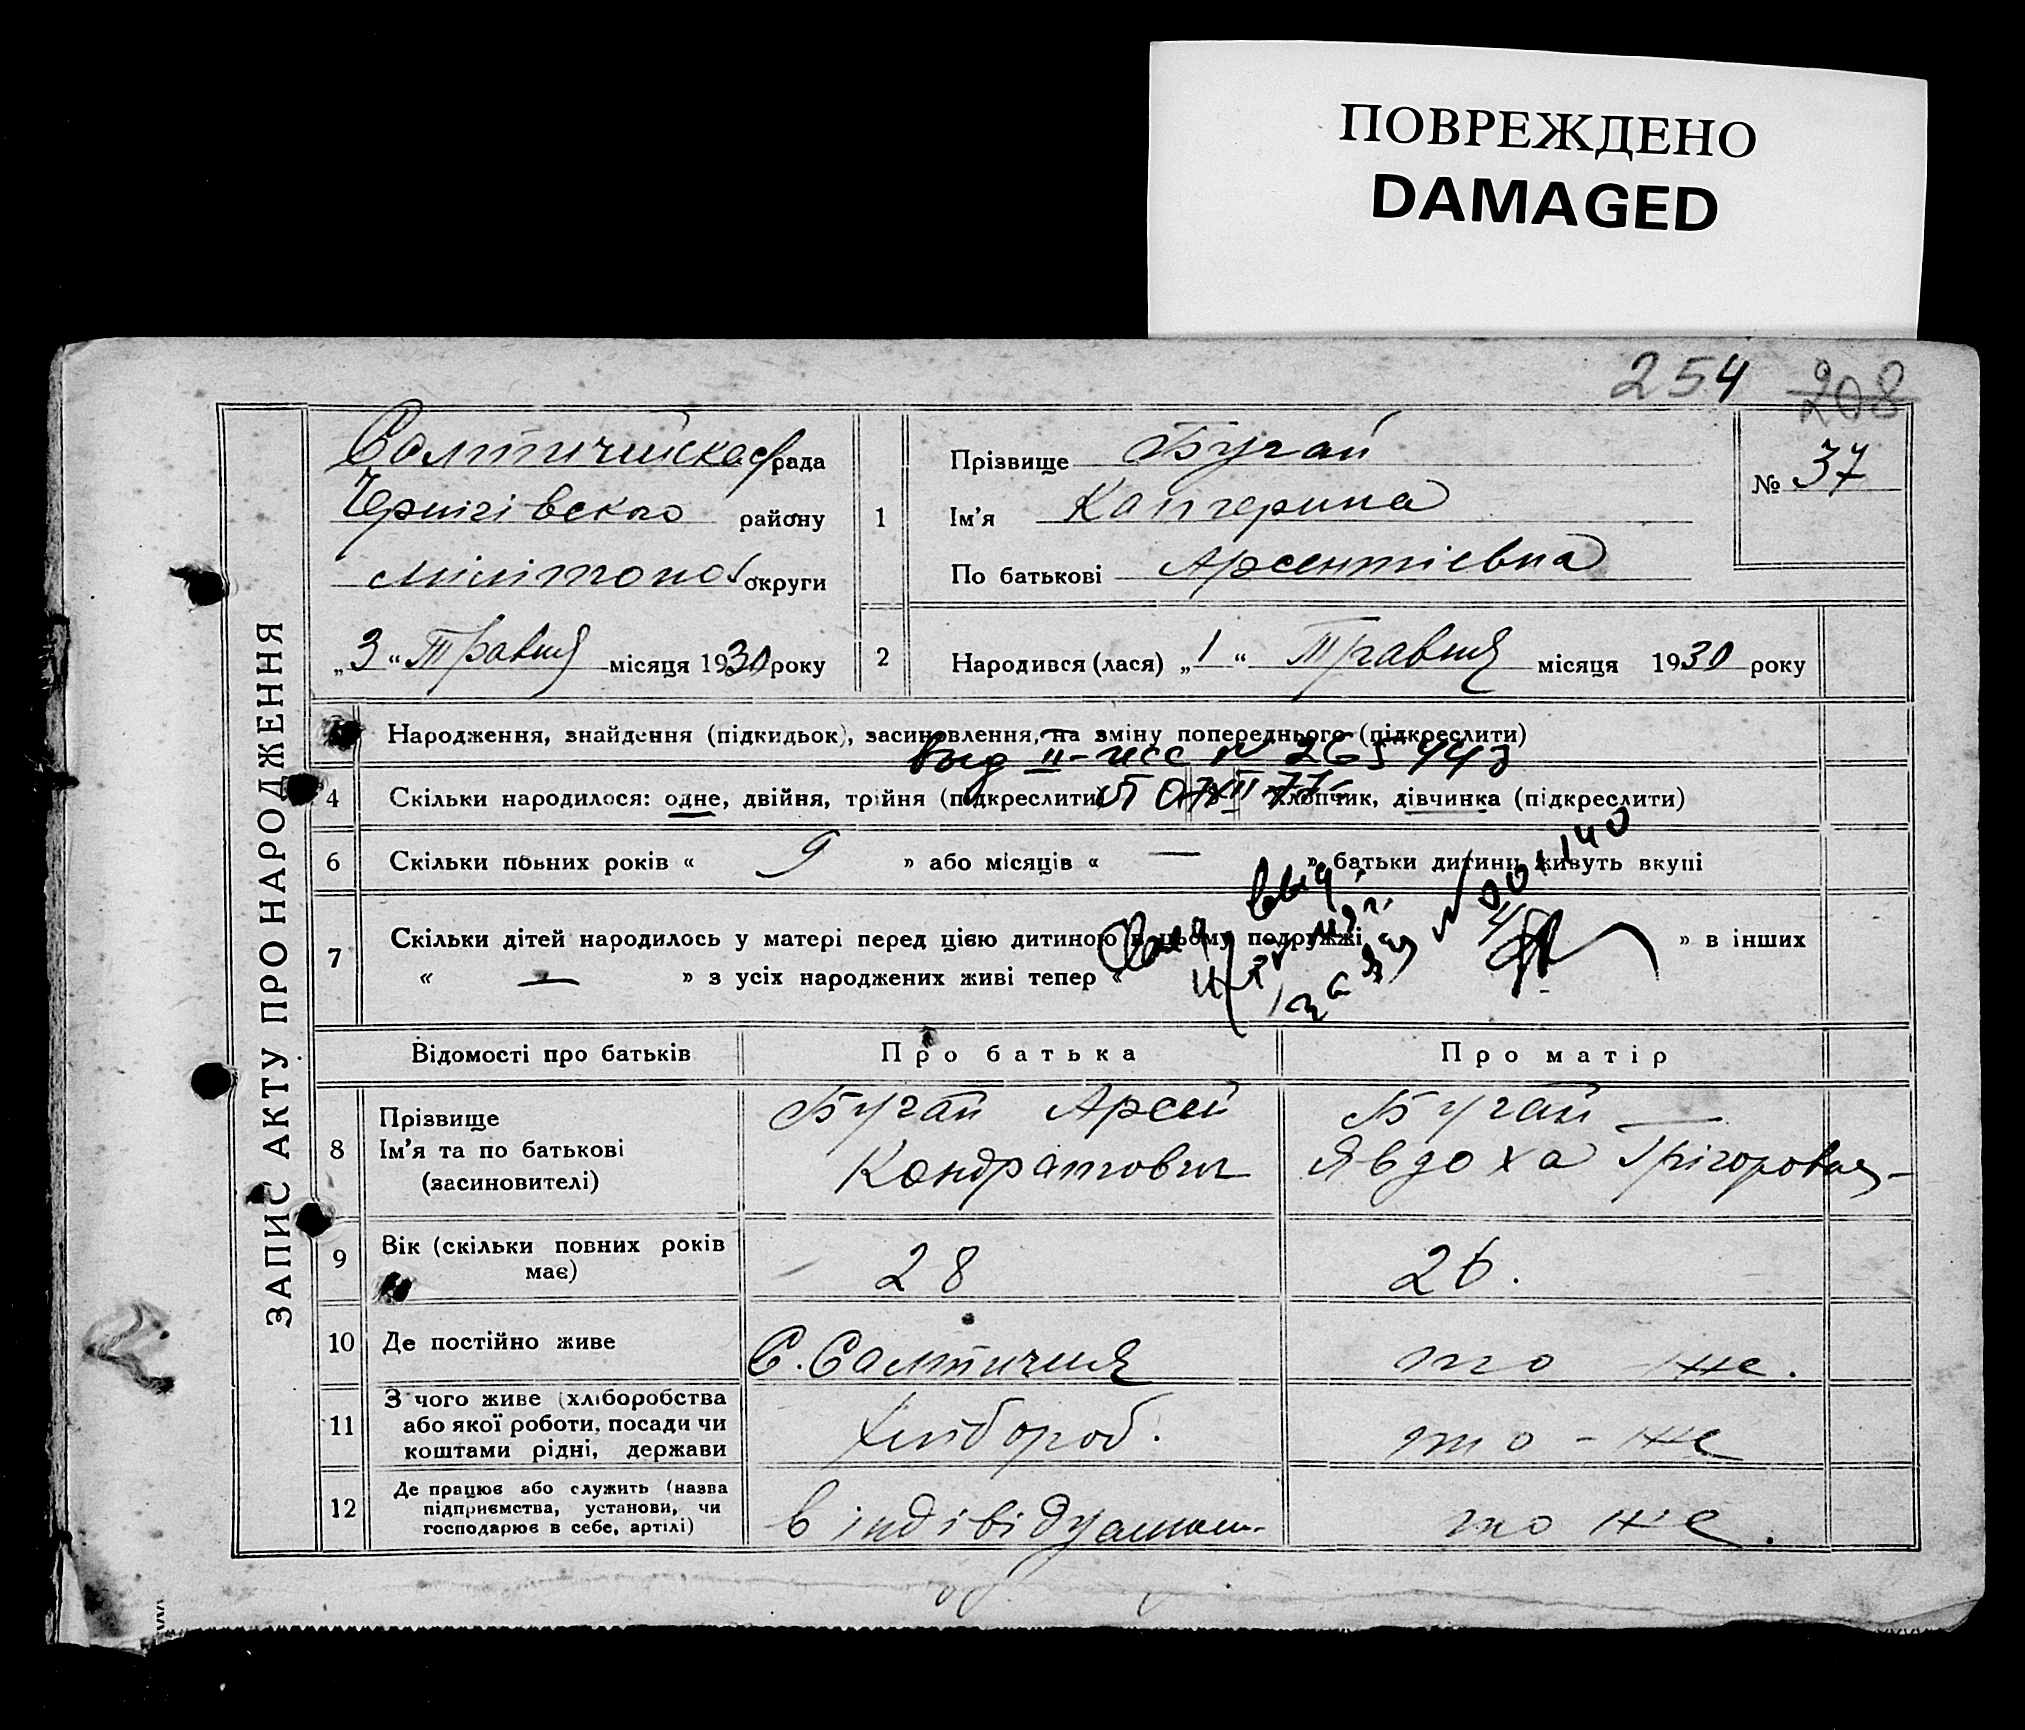 ПОВРЕЖДЕНО
DAMAGED
254 208
ЗАПИС АКТУ ПРО НАРОДЖЕННЯ
Салтичийская рада
Чернігівского району
Мілітопол округи
„3“ Травня місяця 1930 року
1
Прізвище Бугай
Ім'я Катерина
По батькові Арсентіевна
№ 37
2
Народився (лася) „1“ Травня місяця 1930 року
Народження, знайдення (підкидьок), засиновлення, на зміну попереднього (підкреслити)
выд II-жс № 265443
4 Скільки народилося: одне, двійня, трійня (підкреслити) хлопчик, дівчинка (підкреслити)
6 Скільки повних років « 9 » або місяців « — » батьки дитини живуть вкупі
7 Скільки дітей народилось у матері перед цією дитиною в цьому подружжі » в інших
« — » з усіх народжених живі тепер «
Відомості про батьків Про батька Про матір
8 Прізвище
Ім'я та по батькові
(засиновителі)
Бугай Арсей
Кондратович
Бугай —
Явдоха Грігоровна
9 Вік (скільки повних років
має)
28 26.
10 Де постійно живе С. Салтичия то же.
11 З чого живе (хліборобства
або якої роботи, посади чи
коштами рідні, держави
Хлібороб. то-же
12 Де працює або служить (назва
підприємства, установи, чи
господарює в себе, артілі)
в індівідуальн. то же.